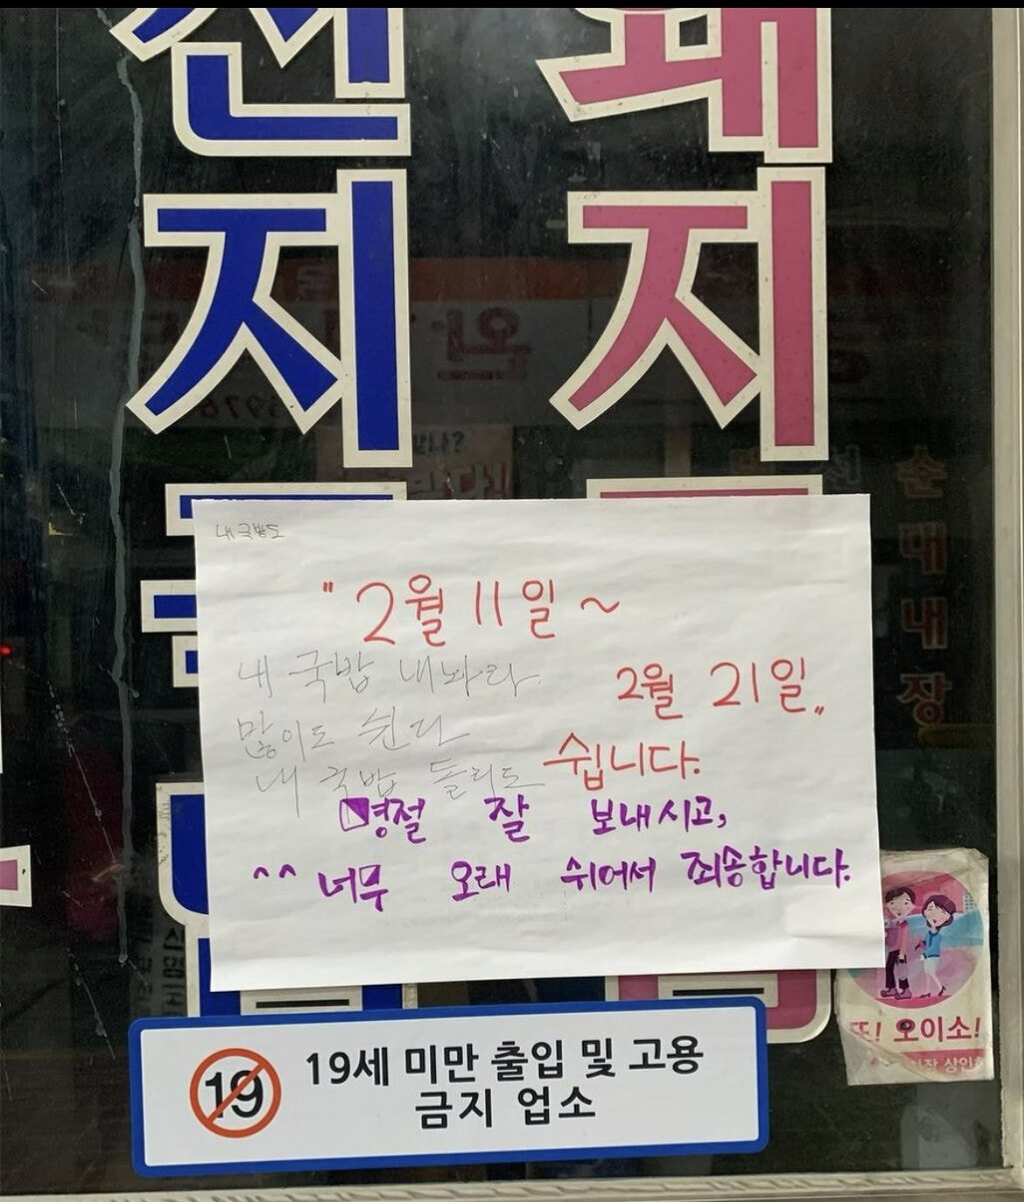 선
지
국
밥
돼
지
국
밥
내국밥도
" 2월 11일 ~
2월 21일 „
쉽니다.
내 국밥 내놔라
많이도 쉰다
내 국밥 돌리도
명절 잘 보내시고,
^^ 너무 오래 쉬어서 죄송합니다.
순
대
내
장
19
19세 미만 출입 및 고용
금지 업소
또! 오이소!